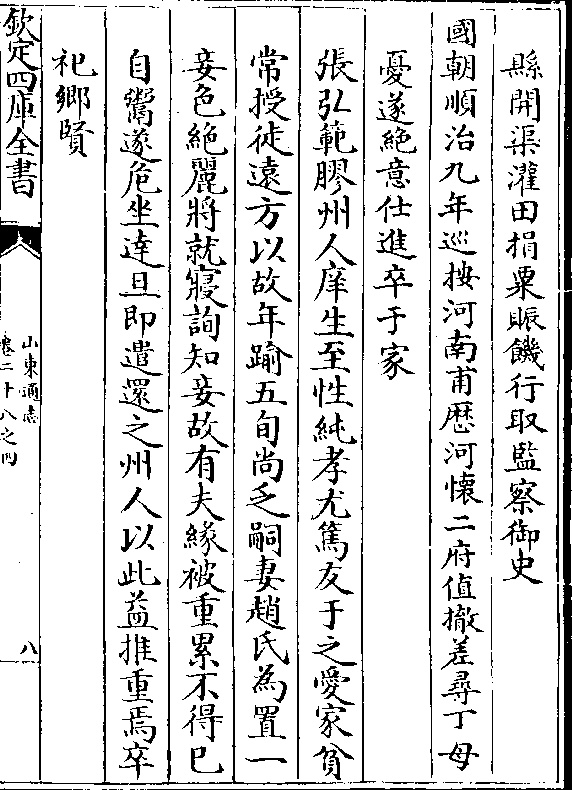 縣開渠灌田捐粟賑饑行取監察御史
國朝順治九年巡按河南甫歷河懷二府值撤差尋丁母
憂遂絶意仕進卒于家
張弘範膠州人庠生至性純孝尤篤友于之愛家貧
常授徒遠方以故年踰五旬尚乏嗣妻趙氏為置一
妾色絶麗將就寢詢知妾故有夫緣被重累不得已
自鬻遂危坐達旦即遣還之州人以此益推重焉卒
祀鄉賢
欽定四庫全書
山東通志
卷二十八之四
八